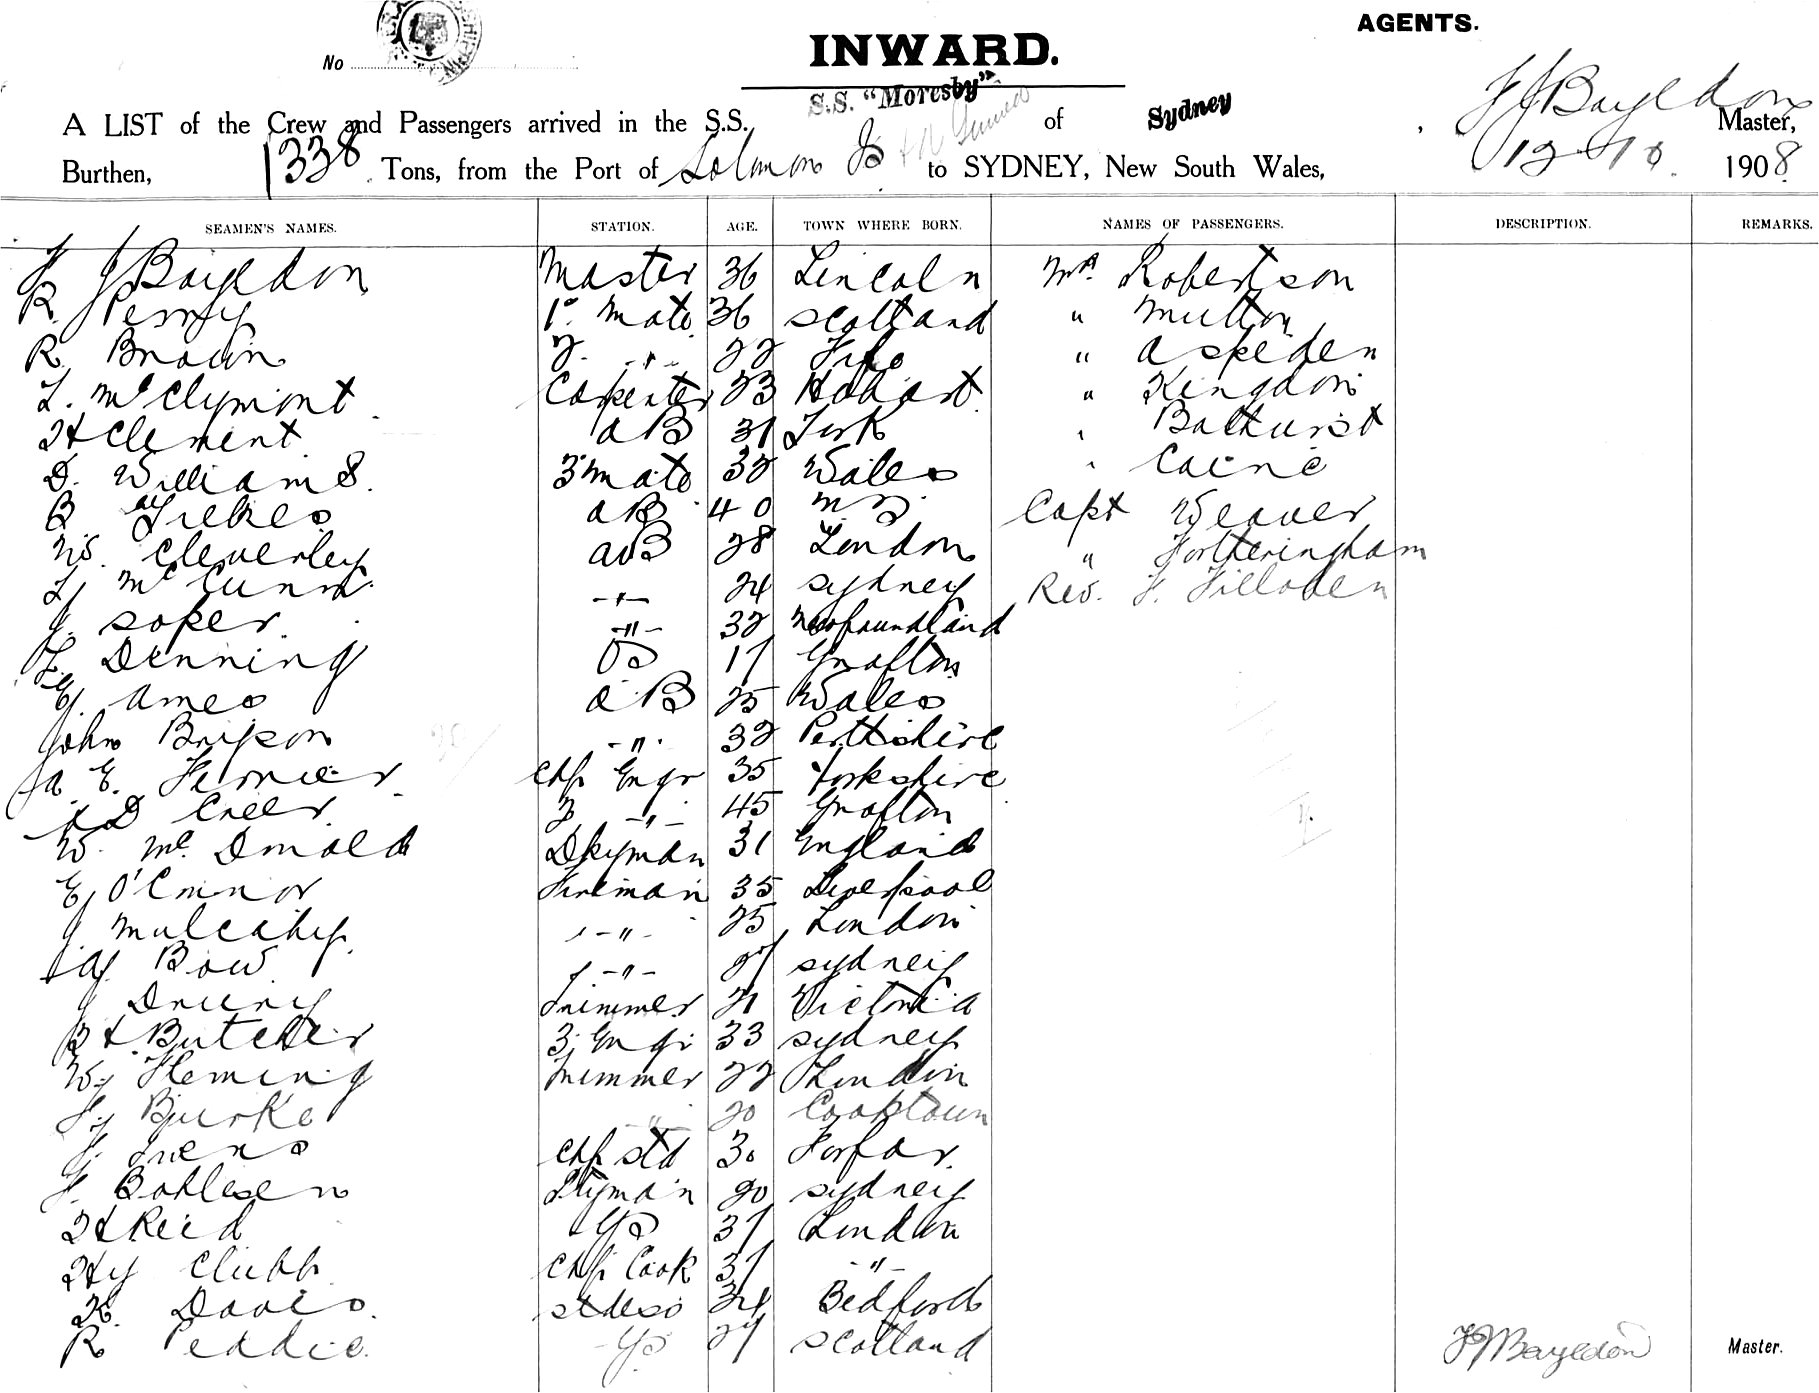 AGENTS.
No
INWARD.
S.S. "Moresby"
A LIST of the Crew and Passengers arrived in the S.S. of Sydney, F J Bayldon Master,
Burthen, 1338 Tons, from the Port of Solomon Is to SYDNEY, New South Wales, 12 10 1908
SEAMEN'S NAMES. STATION. AGE. TOWN WHERE BORN. NAMES OF PASSENGERS. DESCRIPTION. REMARKS.
F J Bayldon Master 36 Lincoln Mr Robertson
R. Perry 1st Mate 36 Scotland " Mutton
R. Brown 2. " 22 Fife " Aspeden
L. McClymont Carpenter 23 Hobart " Kingdon
H Clement AB 31 York " Bathurst
D. Williams. 3 Mate 32 Wales " Caine
B AB 40 N Z. Capt Weaver
W. Cleverley AB 28 London " Fortheringham
Mc " 24 Sydney Rev. F.
J. Soper " 32 Newfoundland
Denning OS 17 Grafton
G. Ames AB 25 Wales
John " 32 Perthshire
A. E. Fernier Chf Engr 35 Yorkshire
D Creer 2 " 45 Grafton
W. McDonald Dkyman 31 England
E. O'Connor Fireman 35 Liverpool
J. Mulcahy " 25 London
Bow " 27 Sydney
J Drury Trimmer 21 Victoria
H. Butcher 3. Engr 33 Sydney
Wy Fleming Trimmer 22 London
Burke " 20 Cooktown
J. Ivens Chf Std 30 Forfar.
F. Bohlesen 20 Sydney
H Reid 37 London
Hy Clubb Chf Cook 37 "
K. Davis. Stdess 34 Bedford
R Peddie. 27 Scotland
F J Bayldon Master.